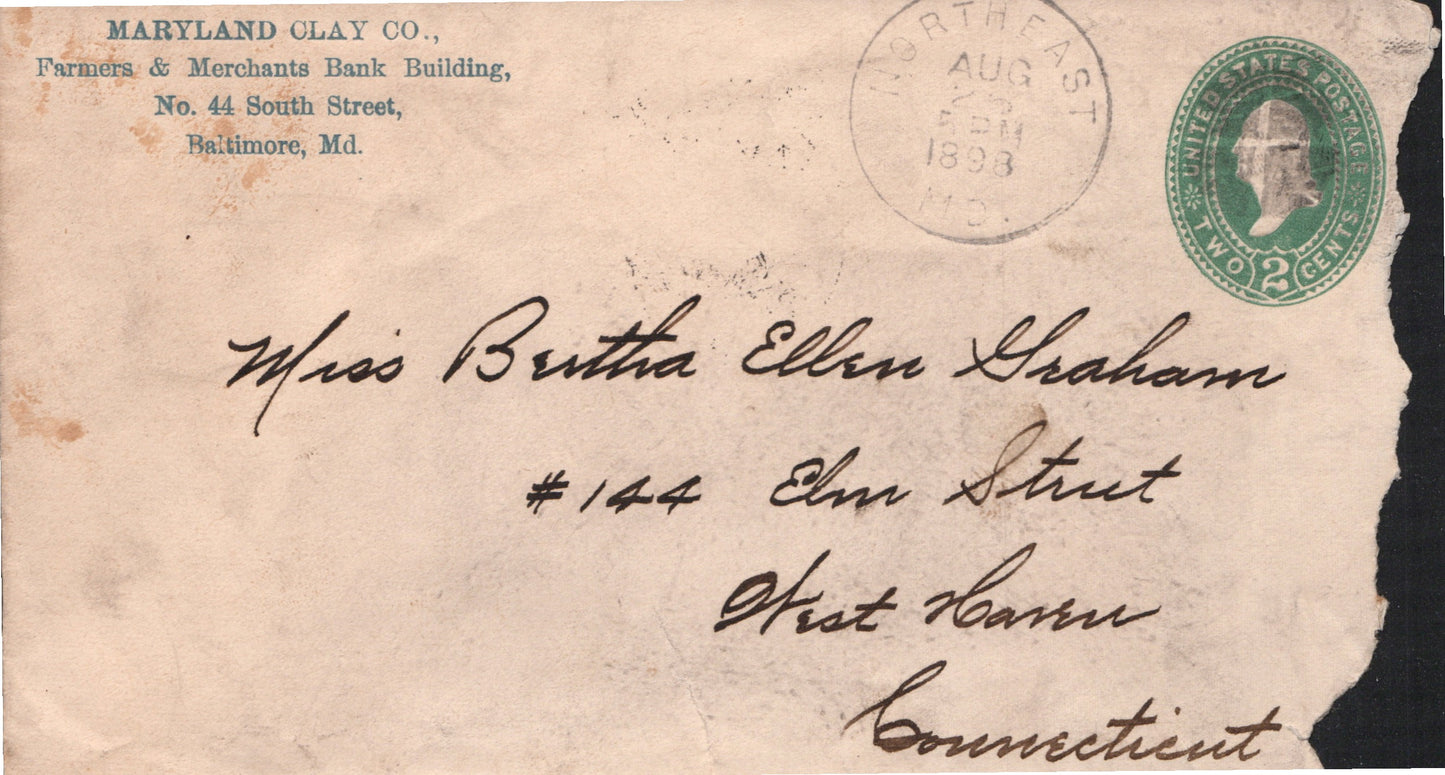 MARYLAND CLAY CO.,
Farmers & Merchants Bank Building,
No. 44 South Street,
Baltimore, Md.
NORTHEAST
AUG
5 PM
1898
MD.
UNITED STATES POSTAGE
TWO 2 CENTS
Miss Bertha Ellen Graham
#144 Elm Street
West Haven
Connecticut